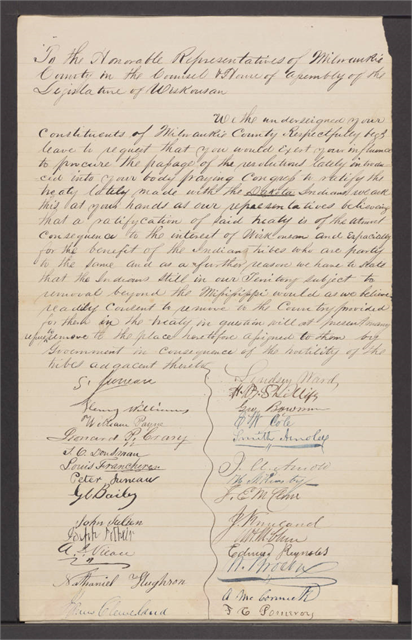 To the Honorable Representatives of Milwaukie
County in the Counsel & House of Assembly of the
Legislature of Wiskonsan
We the undersigned your
Constituents of Milwaukie County Respectfully beg
leave to request that you would exert your influence
to procure the passage of the resolutions lately introdu
ced into your body praying Congress to ratify the
treaty lately made with the Dakota Indians we ask
this at your hands as our representatives believing
that a ratification of said treaty is of the utmost
Consequence to the interest of Wiskonsan and Especially
for the benefit of the Indian tribes who are party
to the same and as a further reason we have to state
that the Indians still in our Territory subject to
removal beyond the Mississippi would as we believe
readily Consent to remove to the Country provided
for them in the treaty in question will at present many
refuse to remove to the place heretofore assigned to them by
Government in Consequence of the hostility of the
tribes adjacent thereto
S. Juneau
Henry Williams
William Payne
Leonard P. Crary
Louis Francheren
Peter Juneau
John
Joseph
A.
Nathaniel Hughson
Lindsey Ward
Geo Bowman
Cole
Smith Arnold
J. A. Arnold
J. E.
J
Edwin Reynolds
A McCormick
F. C. Pomeroy